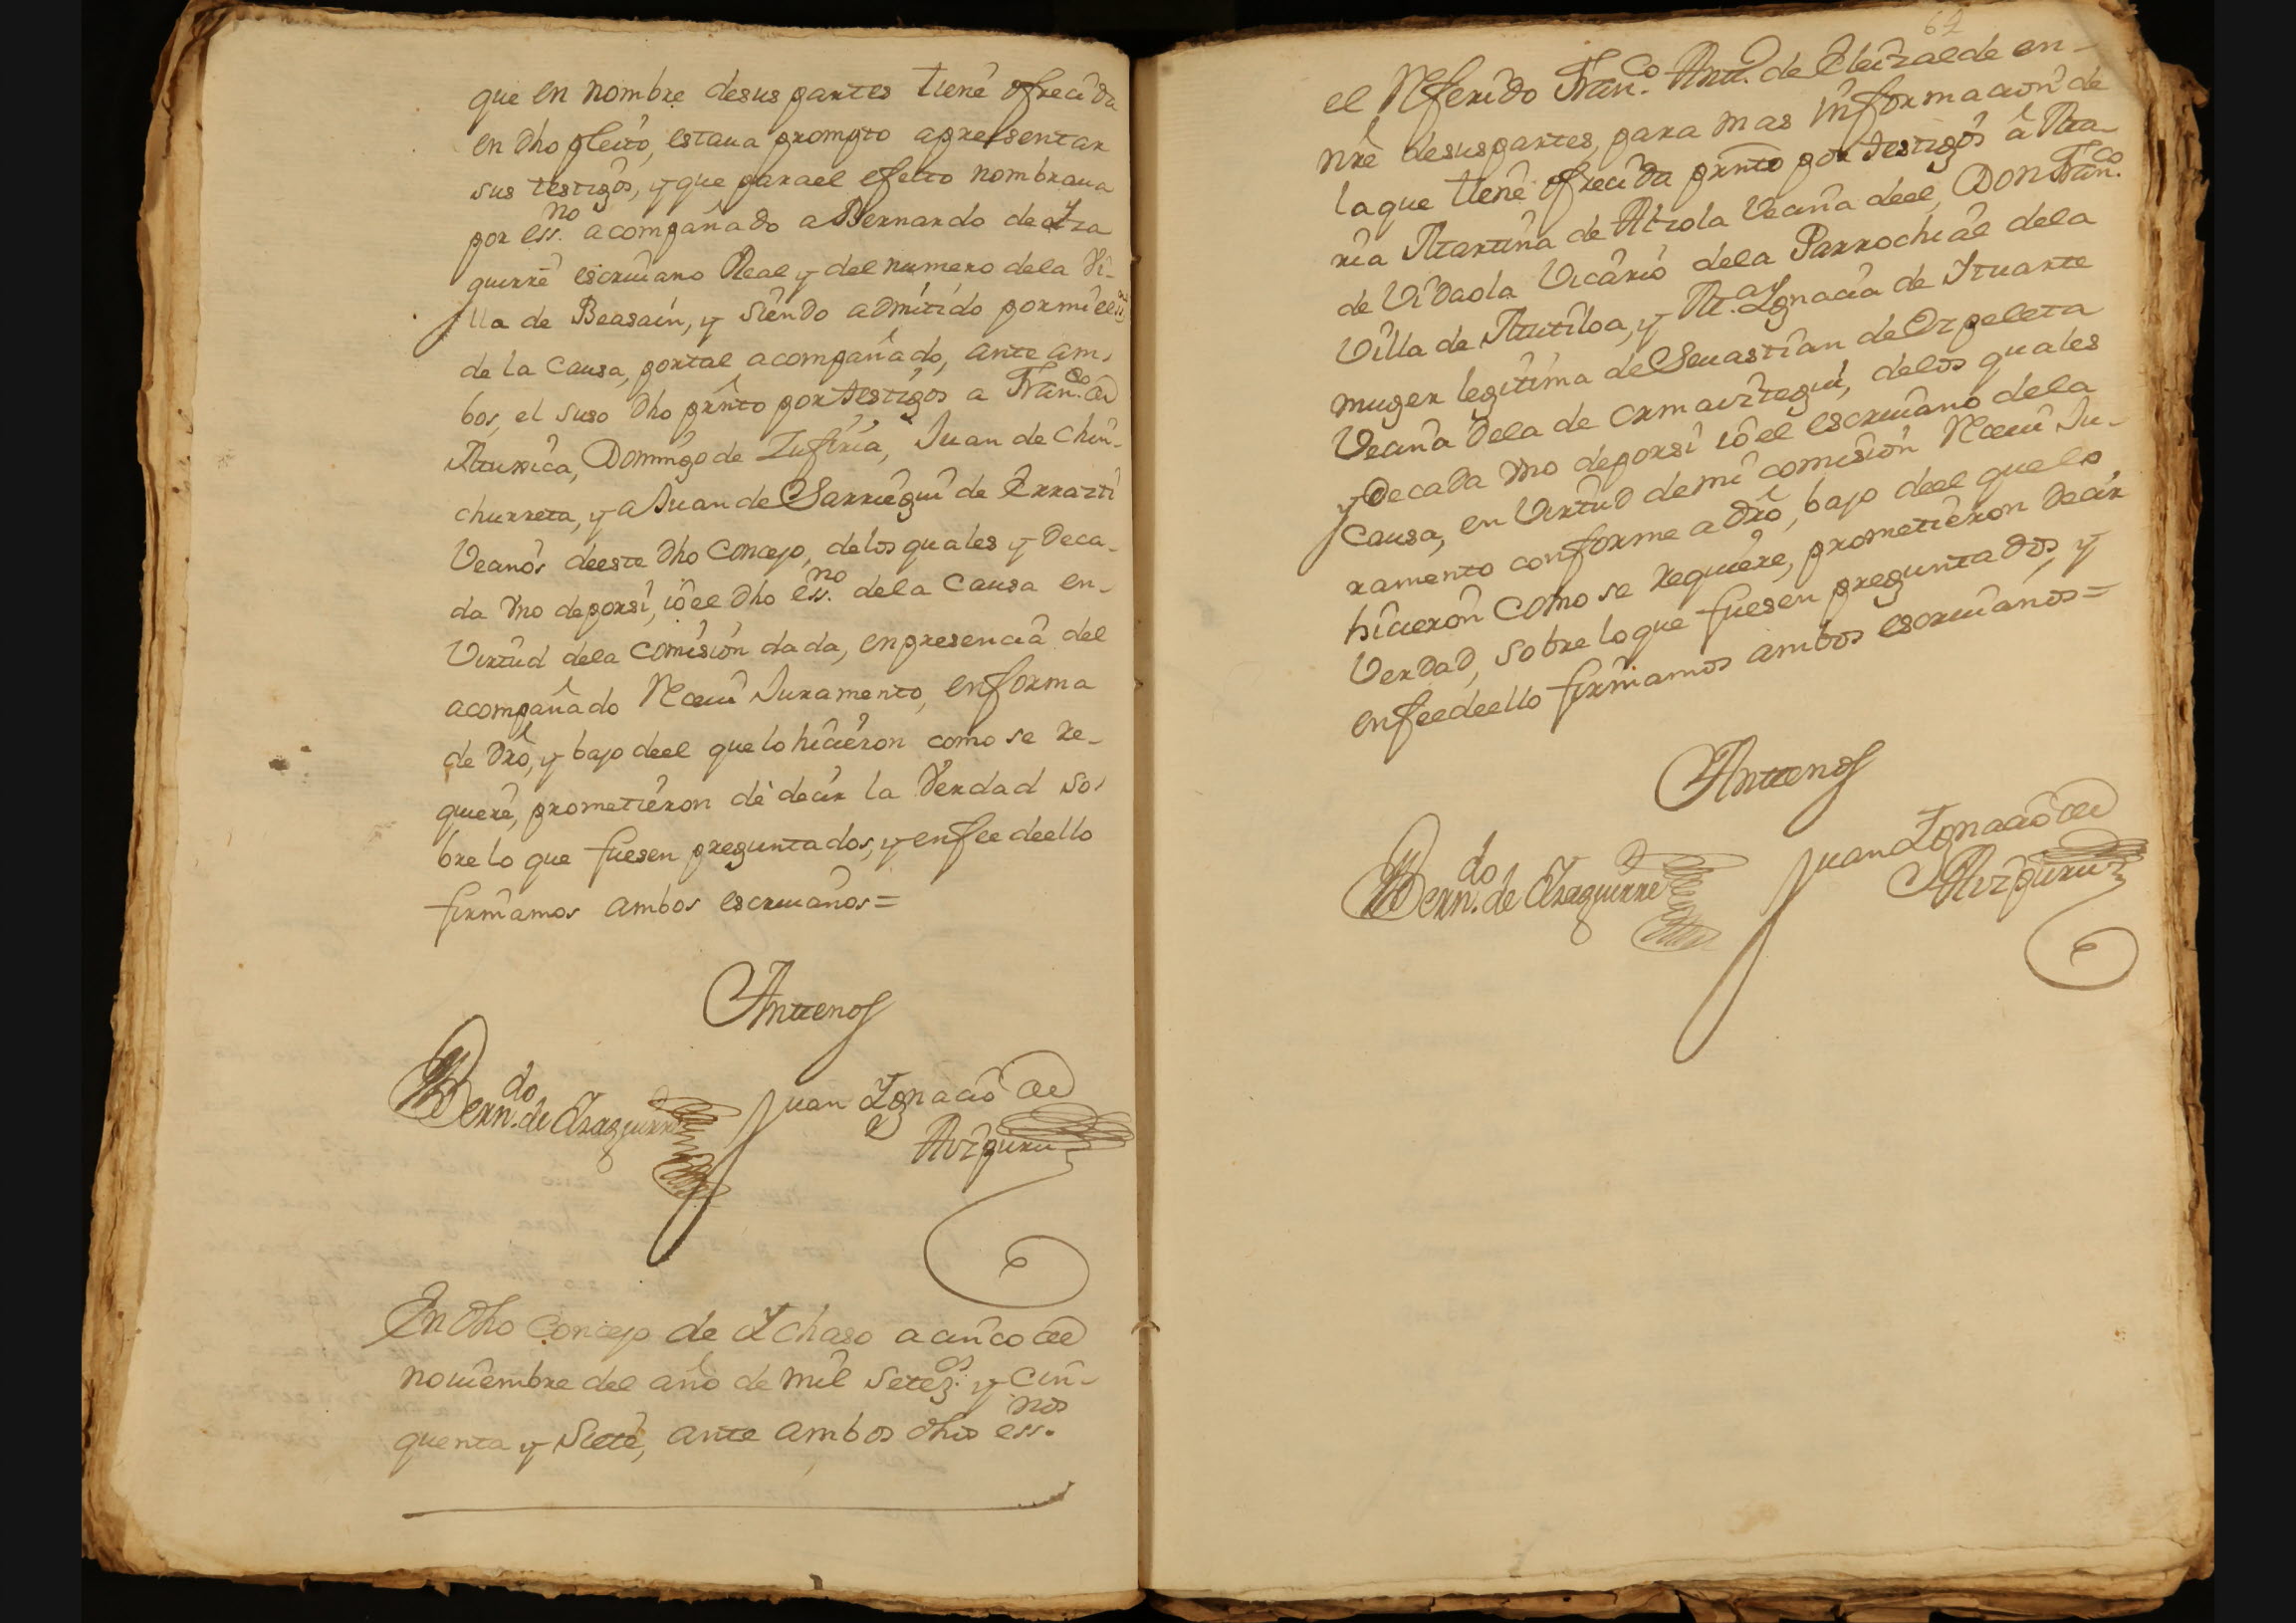 que en nombre desus partes tiene ofrecida
en dho pleito, estaua prompto apresentar
sus testigos, y que parael efecto nombraua
por ess.no acompañado a Bernardo de Yra
guirre escriuano Real y del numero dela Vi-
lla de Beasain, y siendo admitido pormi el
de la Causa, portal acompañado, ante am-
bos, el suso dho prnto por testigos a Fran.co de
Muxica, Domingo de Zufiria, Juan de Chin-
churreta, y a Juan de Sarriegui de Errazti
Vecinos deeste dho Concejo, delos quales y deca-
da Vno deporsi, io el dho ess.no dela Causa en-
Virtud dela Comision dada, enpresencia del
acompañado Recivi Juramento, enforma
de dro, y bajo deel que lo hicieron como se re-
quiere, prometieron de decir la Verdad so-
bre lo que fuesen preguntados, y enfee deello
firmamos ambos escriuanos=
Antenos
Bern.do de Yraguirre Juan Ygnacio de
Aizpuru
En dho Concejo de Ychaso a cinco de
nouiembre del año de mil setez.os y cin-
quenta y siete, ante ambos dhos ess.nos
64
el Referido Fran.co Ant.o de Eleizalde en-
nre desus partes, para mas informacion de
la que tiene ofrecida prnto por testigos â Ma-
ria Martina de Alzola Vecina deel, Don Fran.co
de Vidaola Vicario dela Parrochial dela
Villa de Mutiloa, y M.a Ygnacia de Ituarte
muger legitima de Seuastian de Ozpeleta
Vecina dela de Ormaiztegui, delos quales
y Decada Vno deporsi io el escriuano dela
Causa, en Virtud de mi comision Recivi Ju-
ramento conforme a dro, bajo deel quelo
hicieron como se requiere, prometieron decir
Verdad, sobre loque fuesen preguntados, y
enfeedeello firmamos ambos escriuanos=
Antenos
Bern.do de Yraguirre Juan Ygnacio de
Aizpuru